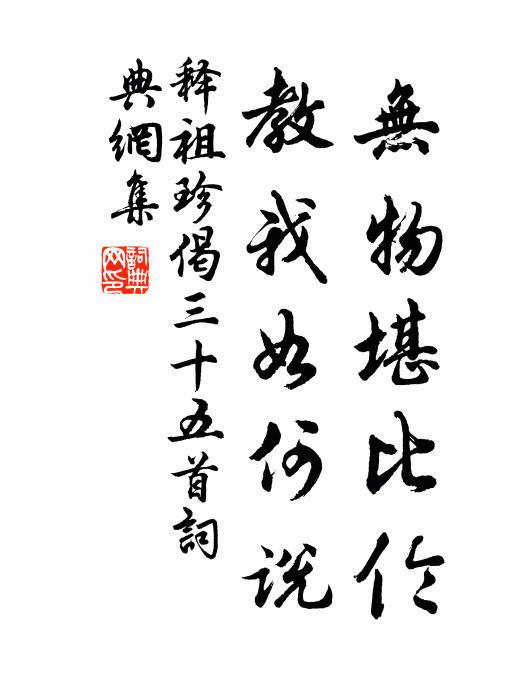 無物堪比伦
教我如何说
释祖珍偈三十五首詞
典網集
詞典
网印